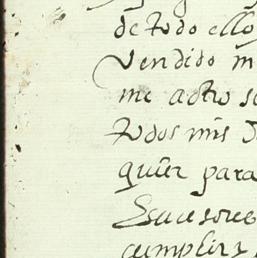 de todo ello
vendido m
me a otro s
todos mis
quier para
Esucesores
cumplir